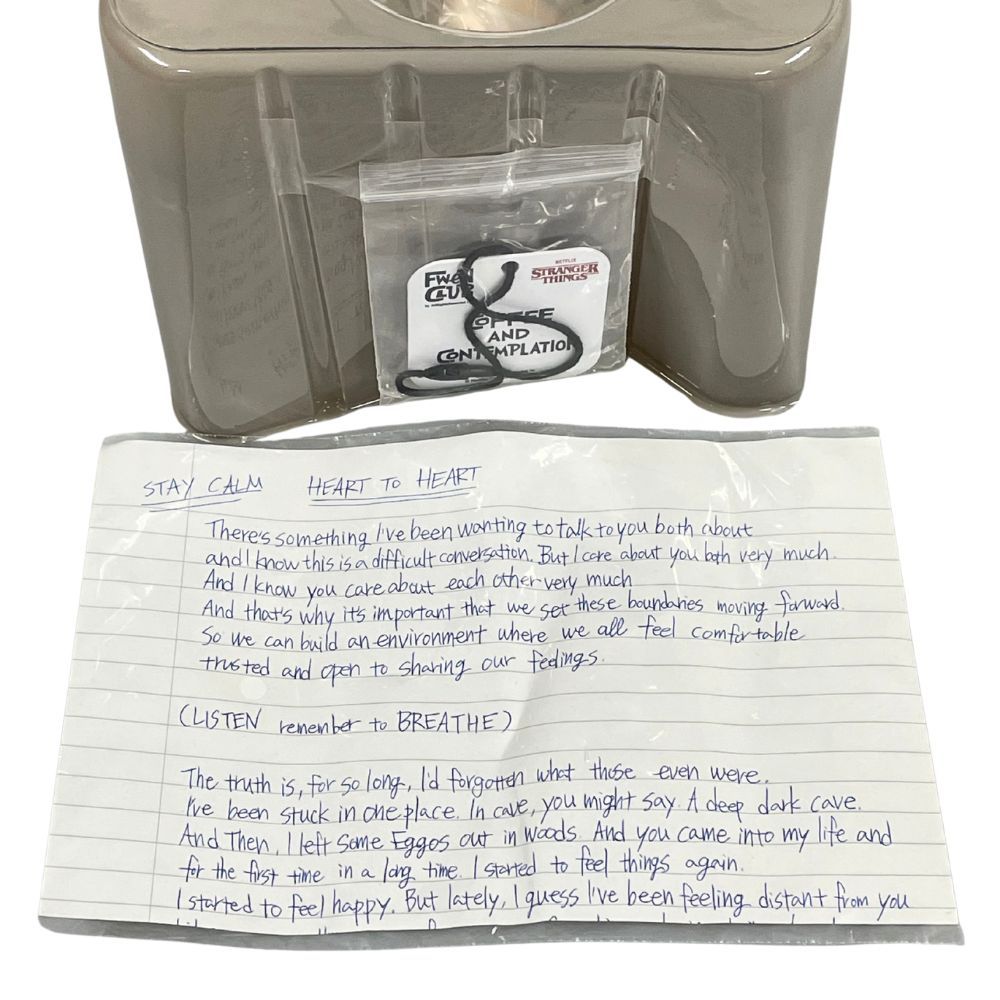 FWEN
CLUB
NETFLIX
STRANGER
THINGS
COFFEE
AND
CONTEMPLATION
STAY CALM HEART TO HEART
There's something I've been wanting to talk to you both about
and I know this is a difficult conversation. But I care about you both very much.
And I know you care about each other very much
And that's why it's important that we set these boundaries moving forward.
So we can build an environment where we all feel comfortable
trusted and open to sharing our feelings.
(LISTEN remember to BREATHE)
The truth is, for so long, I'd forgotten what those even were.
I've been stuck in one place. In cave, you might say. A deep dark cave.
And Then, I left some Eggos out in woods. And you came into my life and
for the first time in a long time. I started to feel things again.
I started to feel happy. But lately, I guess I've been feeling distant from you